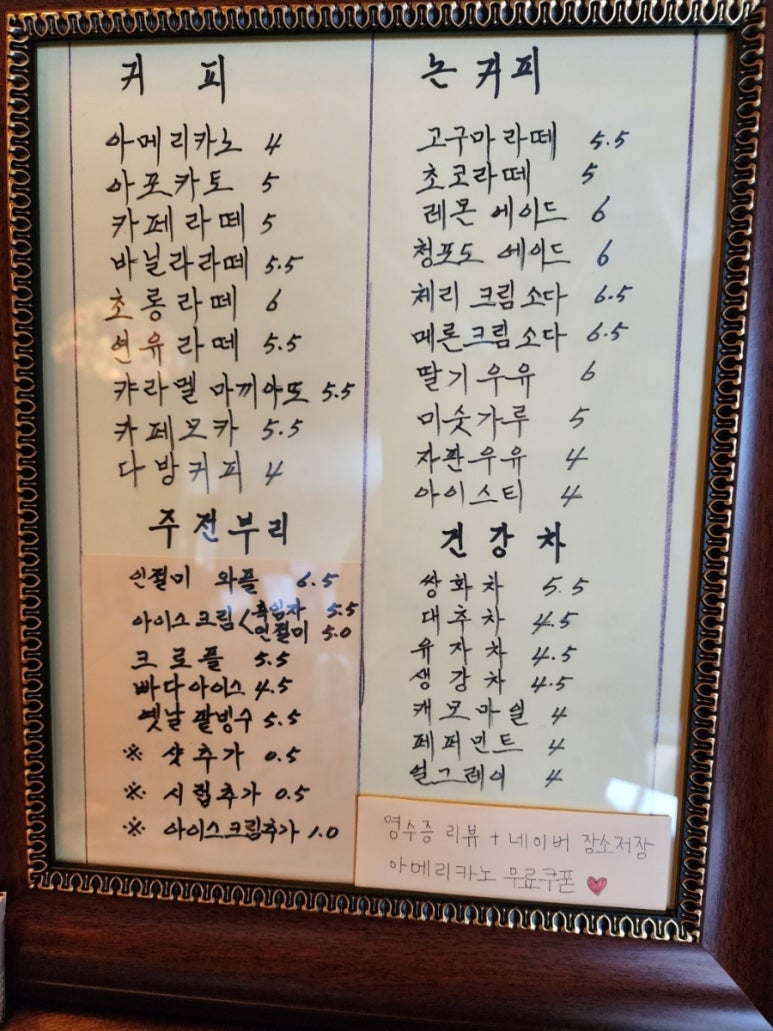 커 피
아메리카노 4
아포카토 5
카페라떼 5
바닐라라떼 5.5
초롱라떼 6
연유라떼 5.5
캬라멜 마끼아또 5.5
카페모카 5.5
다방커피 4
주전부리
인절미 와플 6.5
아이스크림< 흑임자 5.5
인절미 5.0
크로플 5.5
빠다아이스 4.5
옛날 팥빙수 5.5
※ 샷추가 0.5
※ 시럽추가 0.5
※ 아이스크림추가 1.0
논커피
고구마라떼 5.5
초코라떼 5
레몬 에이드 6
청포도 에이드 6
체리 크림소다 6.5
메론크림소다 6.5
딸기우유 6
미숫가루 5
자판우유 4
아이스티 4
건강차
쌍화차 5.5
대추차 4.5
유자차 4.5
생강차 4.5
캐모마일 4
페퍼민트 4
얼그레이 4
영수증 리뷰 + 네이버 장소저장
아메리카노 무료쿠폰 ♥